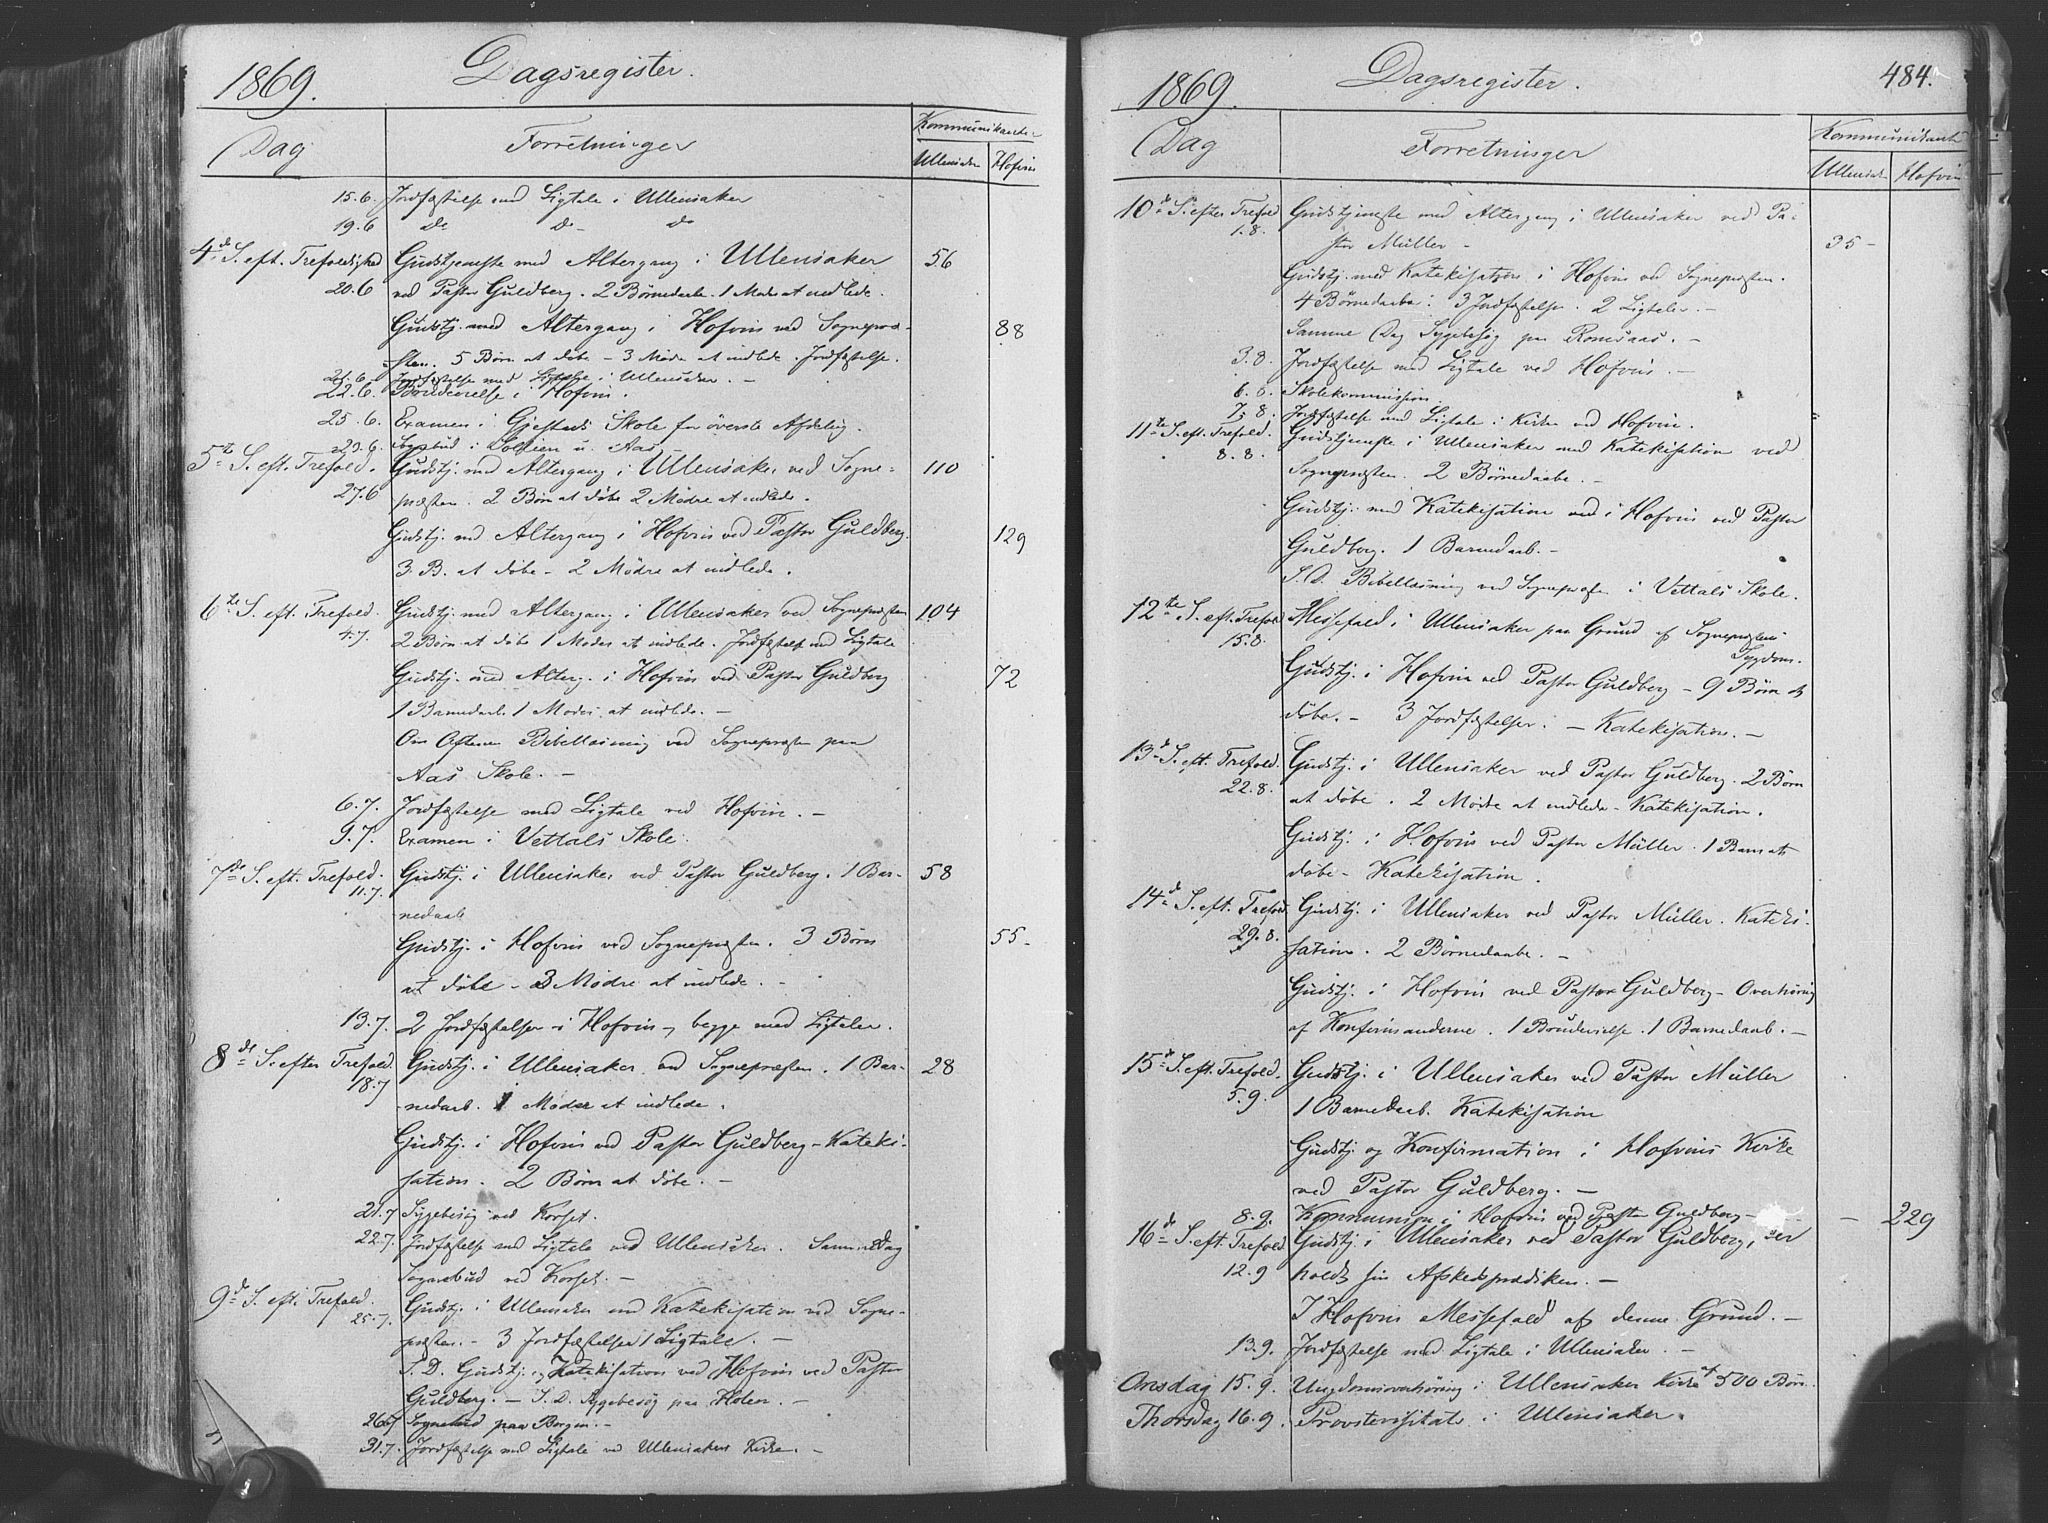 1869. Dagsregister.
Dag Forretninger Kommunikanter
Ullensaker Hofvin
15.6. Jordfæstelse med Ligtale i Ullensaker
19.6 do do do
4de S. eft. Trefoldighed Gudstjeneste med Altergang i Ullensaker 56
20.6 ved Pastor Guldberg. 2 Børnedaab. 1 Moder at indlede.
Gudstj. med Altergang i Hofvin ved Sognepræ- 88
sten. 5 Børn at døbe - 3 Mødre at indlede. Jordfæstelse.
21.6 Jordfæstelse med Ligtale i Ullensaker. -
22.6. Brudevielse i Hofvin.
25.6. Examen i Gjestads Skole for øverste Afdeling.
Sognebud i u. Aas -
5te S. eft. Trefold. Gudstj. med Altergang i Ullensaker ved Sogne- 110
27.6 præsten. 2 Børn at døbe 2 Mødre at indlede.
Gudstj. med Altergang i Hofvin ved Pastor Guldberg. 129
3 B. at døbe - 2 Mødre at indlede.
6te S. eft. Trefold. Gudstj. med Altergang i Ullensaker ved Sognepræsten 104
4.7. 2 Børn at døbe 1 Moder at indlede. Jordfæstelse med Ligtale
Gudstj. med Alterg. i Hofvin ved Pastor Guldberg 72
1 Barnedaab. 1 Moder at indlede. -
Om Aftenen Bibellæsning ved Sognepræsten paa
Aas Skole. -
6.7. Jordfæstelse med Ligtale ved Hofvin. -
9.7. Examen i Vettals Skole.
7de S. eft. Trefold. Gudstj. i Ullensaker ved Pastor Guldberg. 1 Bar- 58
11.7. nedaab
Gudstj. i Hofvin ved Sognepræsten. 3 Børn 55-
at døbe - 3 Mødre at indlede. -
13.7. 2 Jordfæstelser i Hofvin, begge med Ligtaler.
8de S. efter Trefold. Gudstj. i Ullensaker ved Sognepræsten. 1 Bar- 28
18.7 nedaab. 1 Moder at indlede.
Gudstj. i Hofvin ved Pastor Guldberg - Kateki-
sation. 2 Børn at døbe. -
21.7 Sygebesøg ved Korset.
22.7. Jordfæstelse med Ligtale ved Ullensaker. Samme Dag
Sognebud ved Korset. -
9de S. eft. Trefold. Gudstj. i Ullensaker med Katekisation ved Sogne-
25.7. præsten. - 3 Jordfæstelser 1 Ligtale. -
S. D. Gudstj. og Katekisation ved Hofvin ved Pastor
Guldberg. - S. D. Sygebesøg paa Holen. -
26.7 Sognebud paa Borgen. -
31.7. Jordfæstelse med Ligtale ved Ullensakers Kirke. -
1869. Dagsregister. 484.
Dag Forretninger Kommunikanter
Ullensaker Hofvin
10de S. efter Trefold Gudstjeneste med Altergang i Ullensaker ved Pa-
1.8. stor Müller - 35-
Gudstj. med Katekisation i Hofvin ved Sognepræsten.
4 Børnedaabe. 3 Jordfæstelser. 2 Ligtaler. -
Samme Dag Sygebesøg paa Romsaas. -
3.8. Jordfæstelse med Ligtale ved Hofvin. -
6.8. Skolekommission.
7.8. Jordfæstelse med Ligtale i Kirken ved Hofvin.
11te S. eft. Trefold. Gudstjeneste i Ullensaker med Katekisation ved
8.8. Sognepræsten. 2 Børnedaabe. -
Gudstj. med Katekisation ved i Hofvin ved Pastor
Guldberg. 1 Barnedaab. -
S. D. Bibellæsning ved Sognepræsten i Vettals Skole.
12te S. eft. Trefold Messefald i Ullensaker paa Grund af Sognepræstens
15.8. Sygdom.
Gudstj. i Hofvin ved Pastor Guldberg - 9 Børn at
døbe. - 3 Jordfæstelser. - Katekisation. -
13de S. eft. Trefold. Gudstj. i Ullensaker ved Pastor Guldberg. 2 Børn
22.8. at døbe. 2 Mødre at indlede - Katekisation.
Gudstj. i Hofvin ved Pastor Müller. 1 Barn at
døbe - Katekisation.
14de S. eft. Trefold. Gudstj. i Ullensaker ved Pastor Müller. Kateki-
29.8. sation. 2 Børnedaabe. -
Gudstj. i Hofvin ved Pastor Guldberg - Overhøring
af Konfirmanderne. 1 Brudevielse. 1 Barnedaab. -
15de S. eft. Trefold. Gudstj. i Ullensaker ved Pastor Müller
5.9. 1 Barnedaab. Katekisation
Gudstj. og Konfirmation i Hofvins Kirke
ved Pastor Guldberg. -
8.9. Kommunion i Hofvin ved Pastor Guldberg - - 229
16de S. eft. Trefold Gudstj. i Ullensaker ved Pastor Guldberg, der
12.9 holdt sin Afskedspræediken. -
I Hofvin Messefald af denne Grund. -
13.9. Jordfæstelse med Ligtale i Ullensaker. -
Onsdag 15.9. Ungdomsoverhøring i Ullensaker Kirke af 500 Børn.
Thorsdag 16.9. Provstevisitats i Ullensaker.